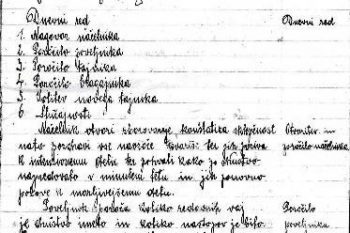 Dnevni red
Dnevni red
1. Nagovor načelnika
2. Poročilo poveljnika
3. Poročilo tajnika
4. Poročilo blagajnika
5. Volitev novega tajnika
6. Slučajnosti
Načelnik otvori zborovanje konštatira sklepčnost
Otvoritev in
nato pozdravi vse navzoče tovariše ter jih poziva
poročilo načelnika.
k intenzivnemu delu ter pohvali kako je društvo
napredovalo v minulem letu in jih ponovno
pozove k marljivejšemu delu.
Poveljnik poroča koliko rednih vaj
Poročilo
je društvo imelo in koliko nastopov je bilo
poveljnika